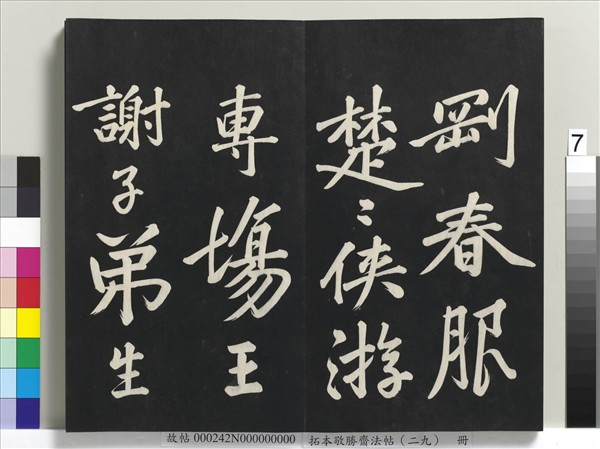 剛春服
楚〻俠游
專場王
謝子弟生
7
故帖 000242N000000000
拓本敬勝齋法帖（二九） 冊